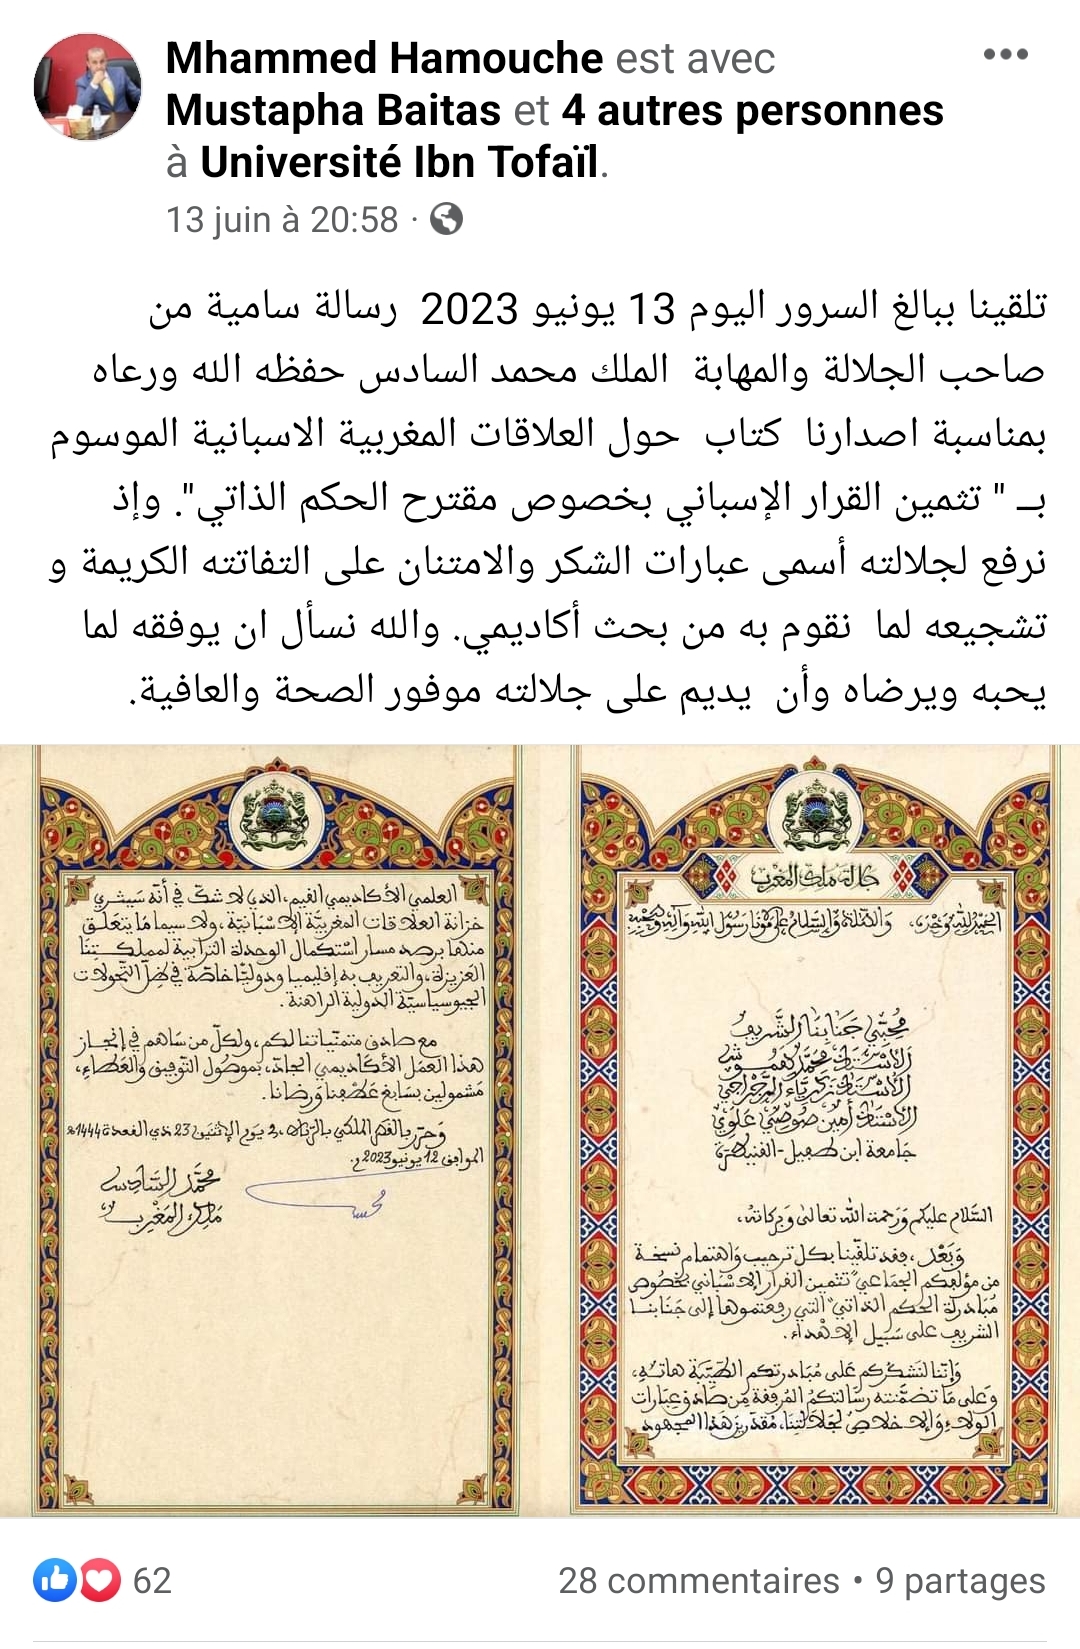 Mhammed Hamouche est avec
Mustapha Baitas et 4 autres personnes
à Université Ibn Tofaïl.
13 juin à 20:58 ·
تلقينا ببالغ السرور اليوم 13 يونيو 2023 رسالة سامية من
صاحب الجلالة والمهابة الملك محمد السادس حفظه الله ورعاه
بمناسبة اصدارنا كتاب حول العلاقات المغربية الاسبانية الموسوم
بــ " تثمين القرار الإسباني بخصوص مقترح الحكم الذاتي". وإذ
نرفع لجلالته أسمى عبارات الشكر والامتنان على التفاتته الكريمة و
تشجيعه لما نقوم به من بحث أكاديمي. والله نسأل ان يوفقه لما
يحبه ويرضاه وأن يديم على جلالته موفور الصحة والعافية.
جلالة ملك المغرب
الحمد لله وحده، والصلاة والسلام على مولانا رسول الله وآله وصحبه
محبي جنابنا الشريف
الأستاذ محمد همـوش
الأستاذ زكرياء
الأستاذ أمين علوي
جامعة ابن طفيل-القنيطرة
السلام عليكم ورحمة الله تعالى وبركاته،
وبعد، فقد تلقينا بكل ترحيب واهتمام نسخة
من مؤلفكم الجماعي "تثمين القرار الإسباني بخصوص
مبادرة الحكم الذاتي" التي رفعتموها إلى جنابنا
الشريف على سبيل الإهداء.
وإننا لنشكركم على مبادرتكم الطيبة هاته،
وعلى ما تضمنته رسالتكم المرفقة من صادق عبارات
الولاء والإخلاص لجلالتنا، مقدرين هذا المجهود
العلمي الأكاديمي القيم، الذي لا شك في أنه سيثري
خزانة العلاقات المغربية الإسبانية، ولا سيما ما يتعلق
منها برصد مسار استكمال الوحدة الترابية لمملكتنا
العزيزة، والتعريف به إقليميا ودوليا خاصة في ظل التحولات
الجيوسياسية الدولية الراهنة.
مع صادق متمنياتنا لكم، ولكل من ساهم في إنجاز
هذا العمل الأكاديمي الجاد، بموصول التوفيق والعطاء،
مشمولين بسابغ عطفنا ورضانا.
وحرر بالقصر الملكي بالرباط، في يوم الإثنين 23 ذي القعدة 1444هـ
الموافق 12 يونيو 2023م.
محمد السادس
ملك المغرب
62
28 commentaires • 9 partages